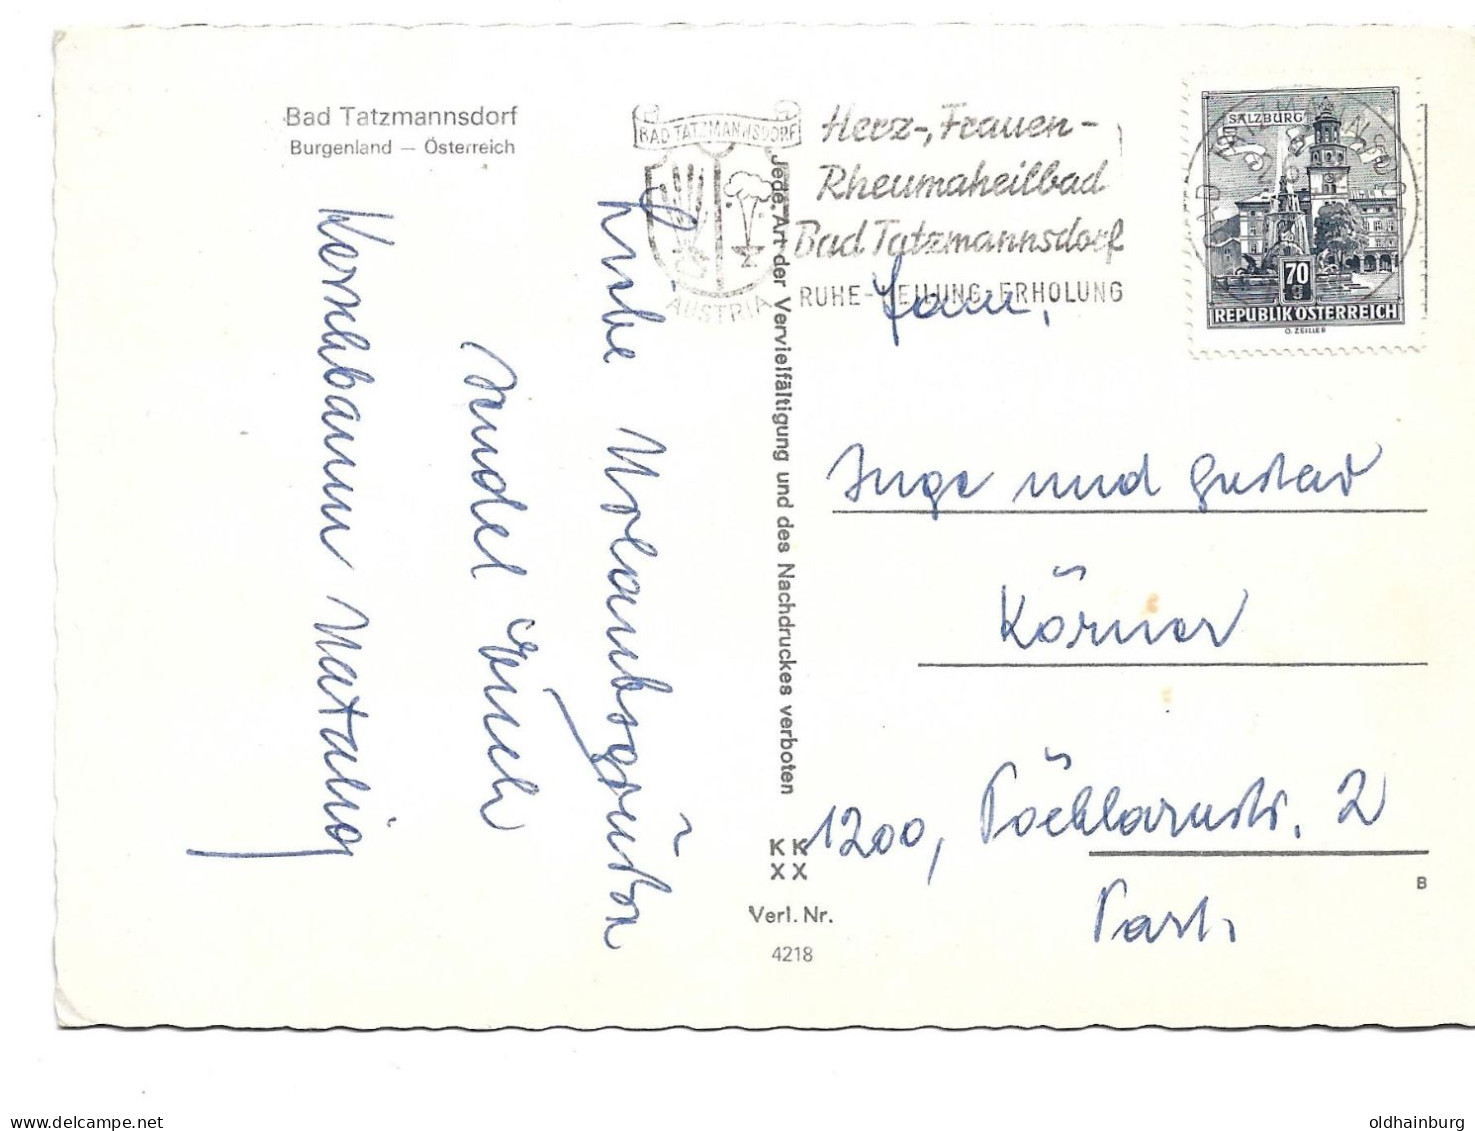 Bad Tatzmannsdorf
Burgenland — Österreich
BAD TATZMANNSDORF
AUSTRIA
Herz-, Frauen-
Rheumaheilbad
Bad Tatzmannsdorf
RUHE-HEILUNG-ERHOLUNG
SALZBURG
70
g
REPUBLIK ÖSTERREICH
O. ZEILLER
Liebe Urlaubsgrüße
sendet Euch
Fam.
Inge und Gustav
Körner
1200, Pöchlarnstr. 2
Jede Art der Vervielfältigung und des Nachdruckes verboten
KK
XX
Verl. Nr.
4218
B
oldhainburg